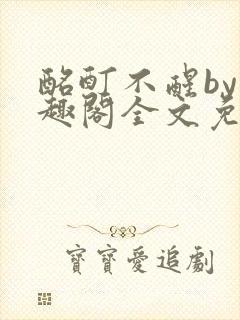 酩酊不醒by
趣閣全文免
寶寶愛追劇